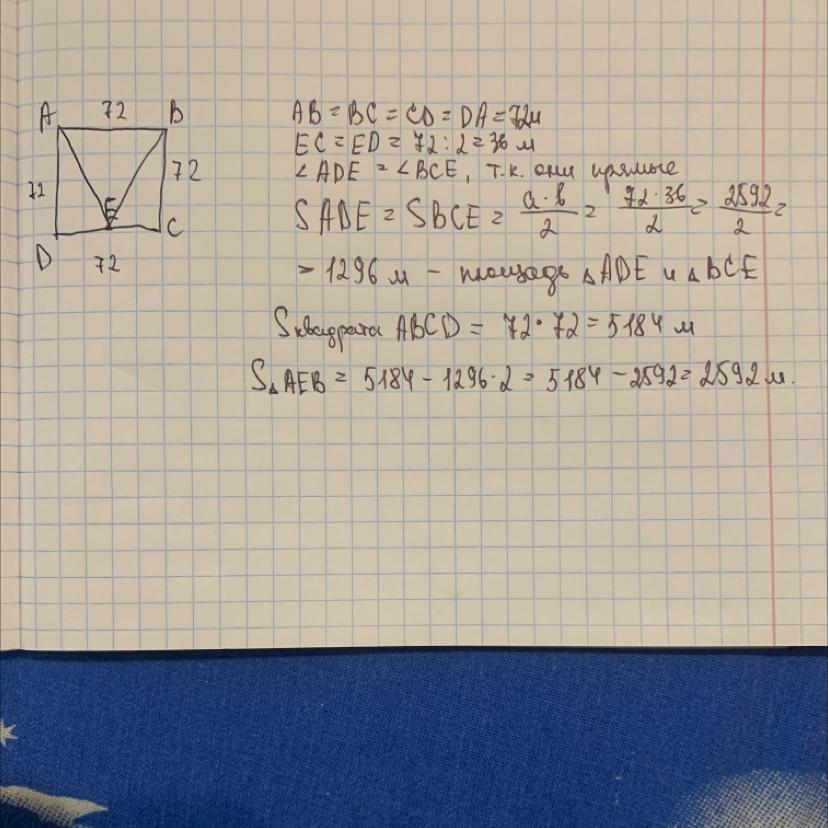 A 72 B
72
72
E
D
C
72
AB = BC = CD = DA = 72м
EC = ED = 72 : 2 = 36 м
∠ADE = ∠BCE, т.к. они прямые
SADE = SBCE = a·b/2 = 72·36/2 = 2592/2 =
= 1296 м – площадь △ADE и △BCE
Sквадрата ABCD = 72·72 = 5184 м
S△AEB = 5184 – 1296·2 = 5184 – 2592 = 2592 м.